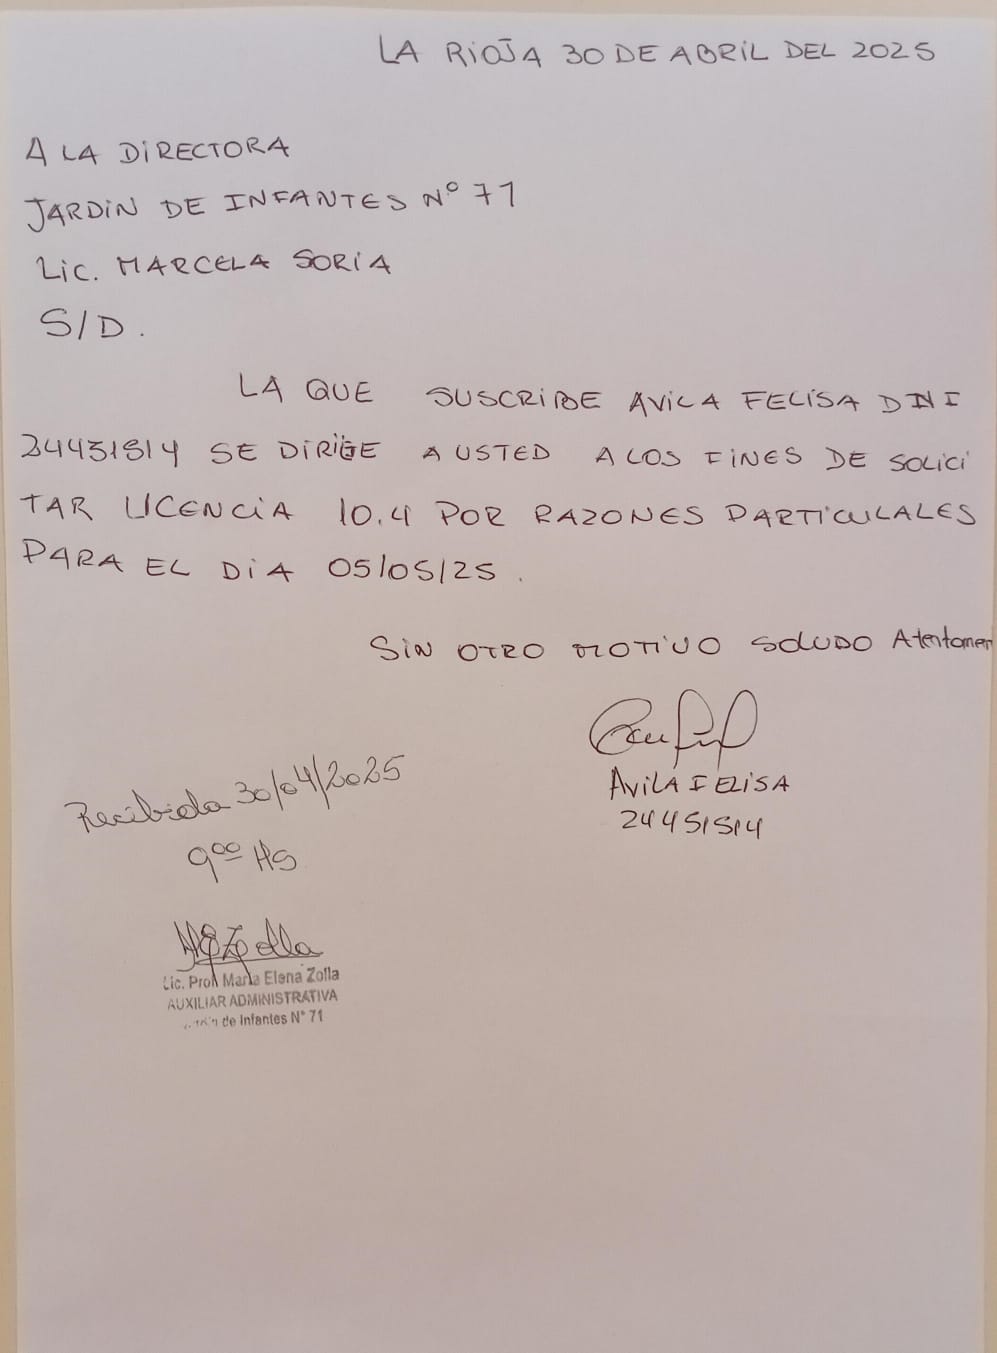 LA RiOJA 30 DE ABRiL DEL 2025
A LA DiRECTORA
JARDiN DE INFANTES N° 71
Lic. MARCELA SORiA
S/D.
LA QUE SUSCRiBE AViLA FELiSA DNI
24451514 SE DiRiGE A USTED A LOS FINES DE SOLiCi
TAR LICENCiA 10.4 POR RAZONES PARTiCULALES
PARA EL DiA 05/05/25.
SiN OTRO MOTiVO SALUDO Atentamen
AViLA FELiSA
24451514
Recibida 30/04/2025
9⁰⁰ HS
Lic. Prof. María Elena Zolla
AUXILIAR ADMINISTRATIVA
de Infantes N° 71